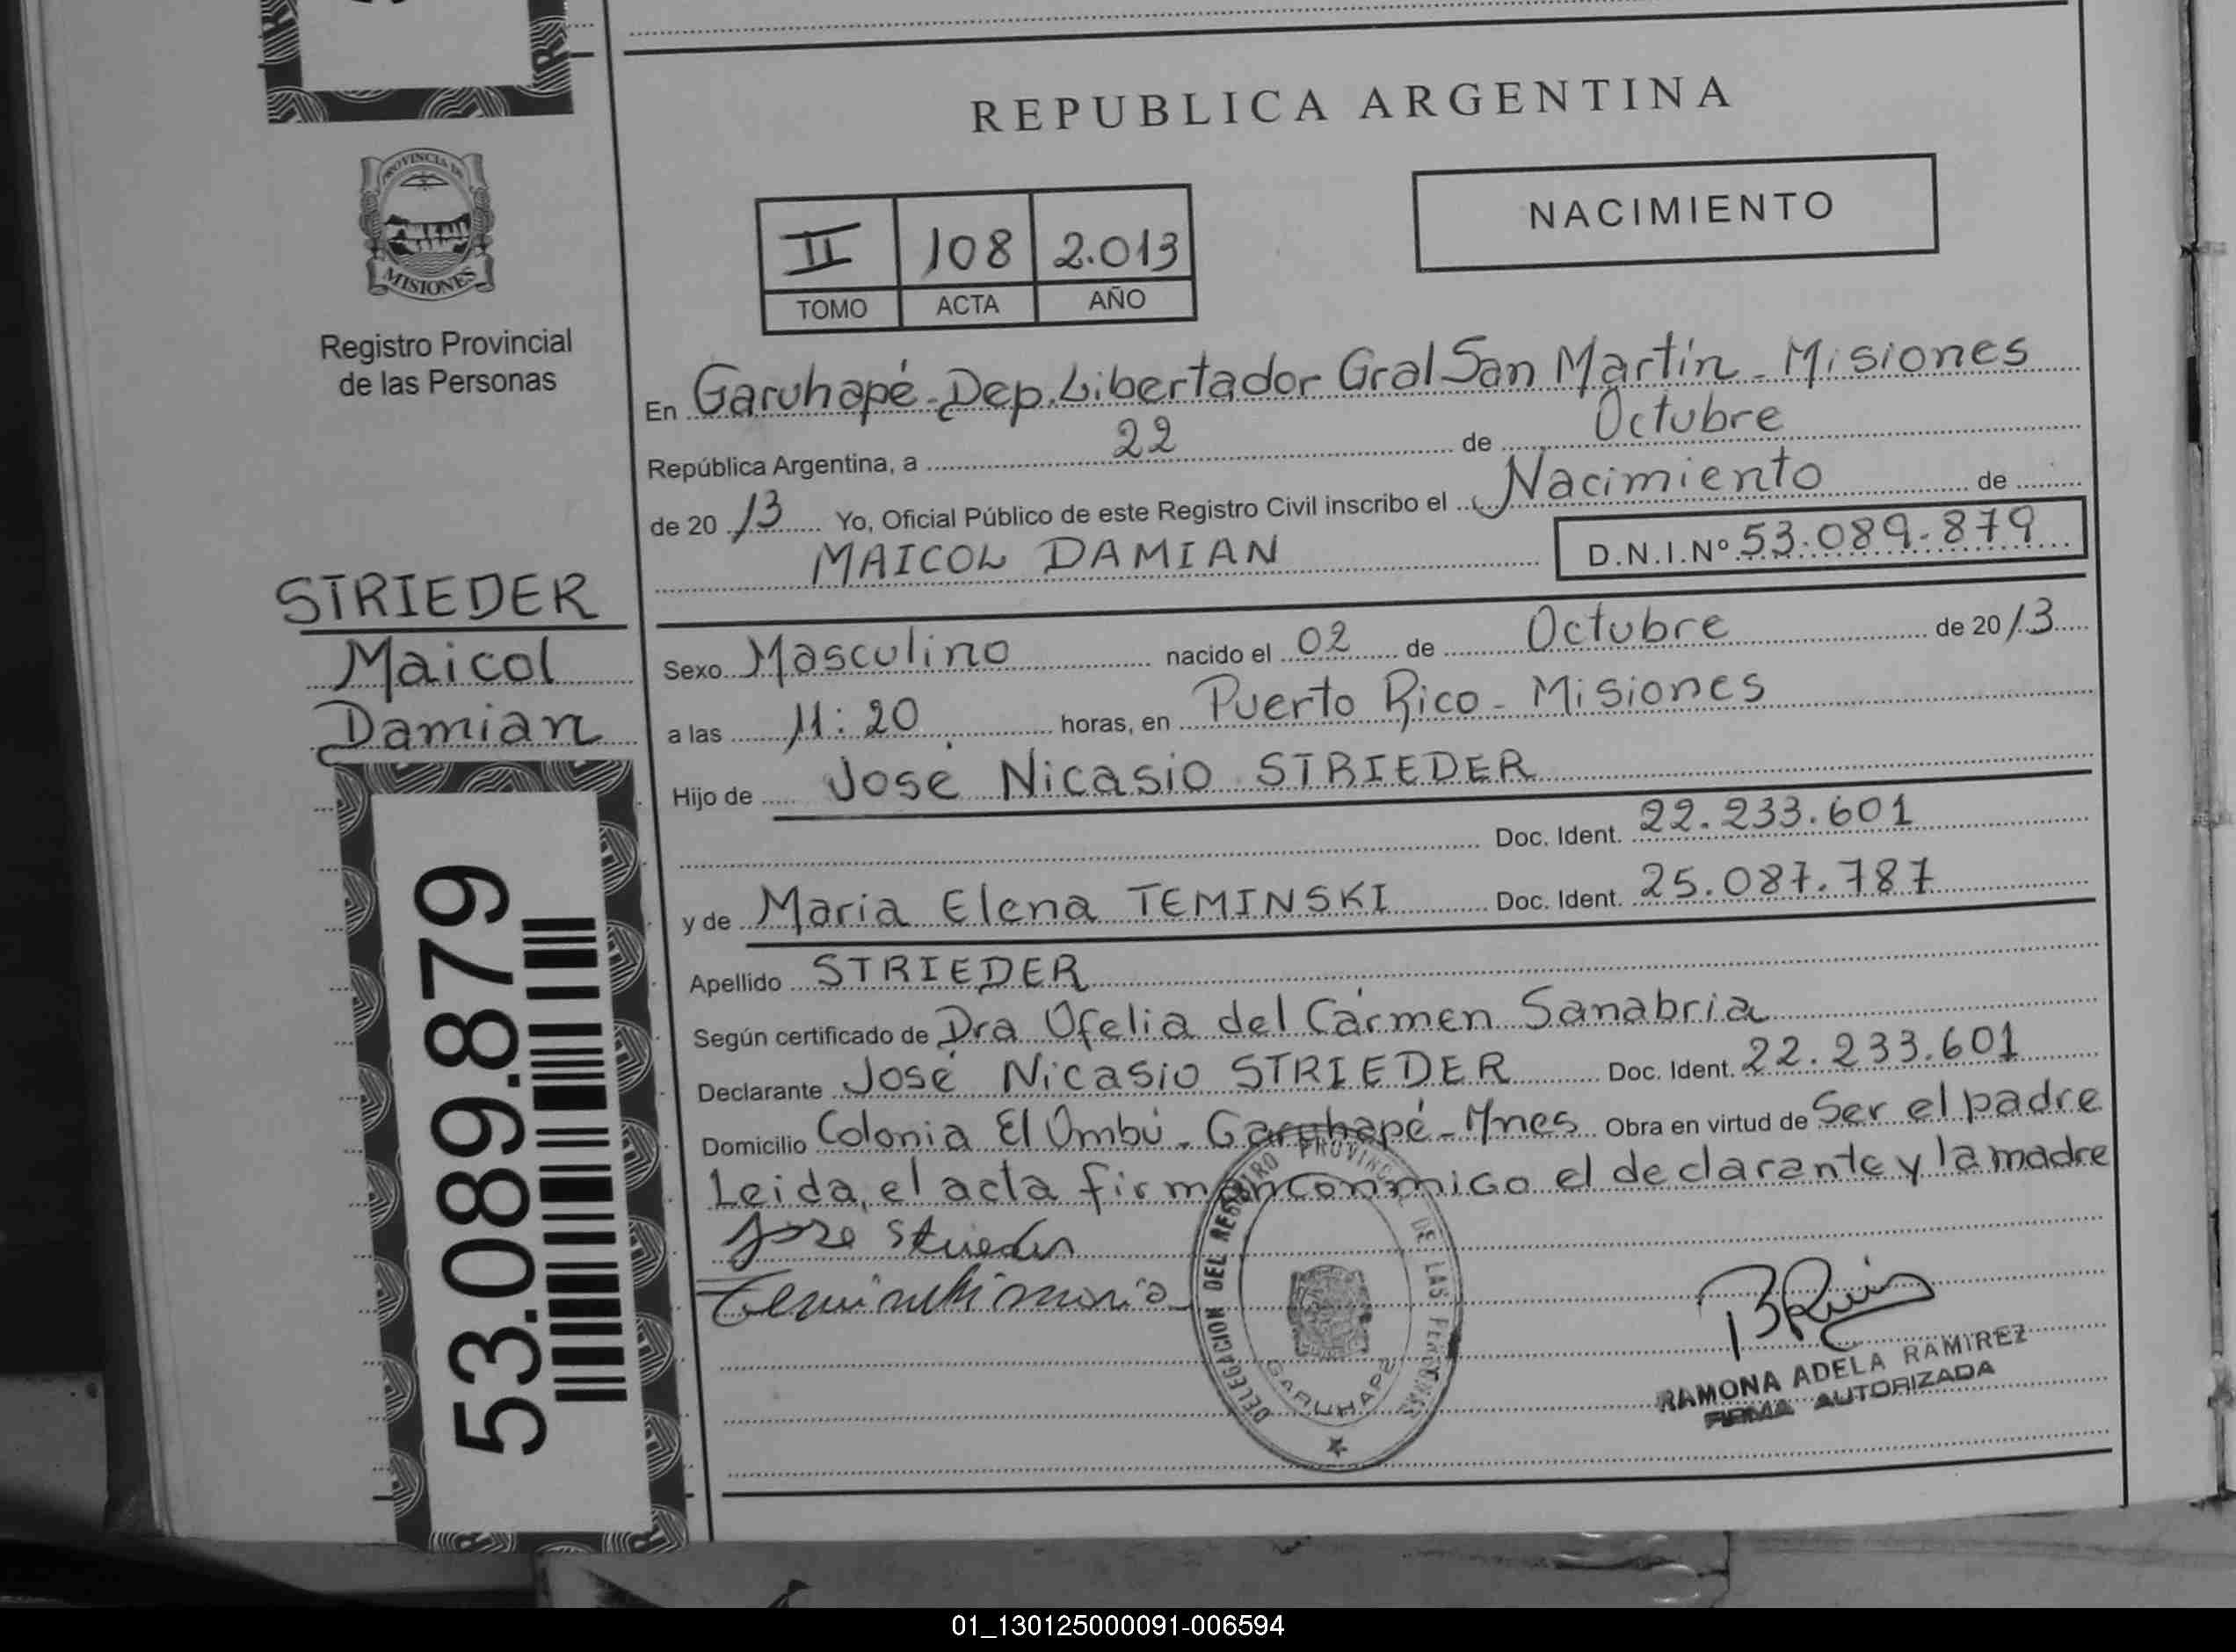 REPUBLICA ARGENTINA
PROVINCIA DE
MISIONES
Registro Provincial
de las Personas
NACIMIENTO
II 108 2.013
TOMO ACTA AÑO
En Garuhapé - Dep. Libertador Gral San Martín - Misiones
República Argentina, a 22 de Octubre
de 2013 Yo, Oficial Público de este Registro Civil inscribo el Nacimiento de
MAICOL DAMIAN D.N.I.Nº 53.089.879
STRIEDER
Maicol
Damian
Sexo Masculino nacido el 02 de Octubre de 2013
a las 11:20 horas, en Puerto Rico - Misiones
Hijo de José Nicasio STRIEDER
Doc. Ident. 22.233.601
y de Maria Elena TEMINSKI Doc. Ident. 25.087.787
Apellido STRIEDER
Según certificado de Dra Ofelia del Cármen Sanabria
Declarante José Nicasio STRIEDER Doc. Ident. 22.233.601
Domicilio Colonia El Ombú - Garuhapé - Mnes Obra en virtud de Ser el padre
Leida, el acta firman conmigo el declarante y la madre
53.089.879
Jose Strieder
Teminski maria
DELEGACION DEL REGISTRO PROVINCIAL DE LAS PERSONAS
GARUHAPE
RAMONA ADELA RAMIREZ
FIRMA AUTORIZADA
01_130125000091-006594